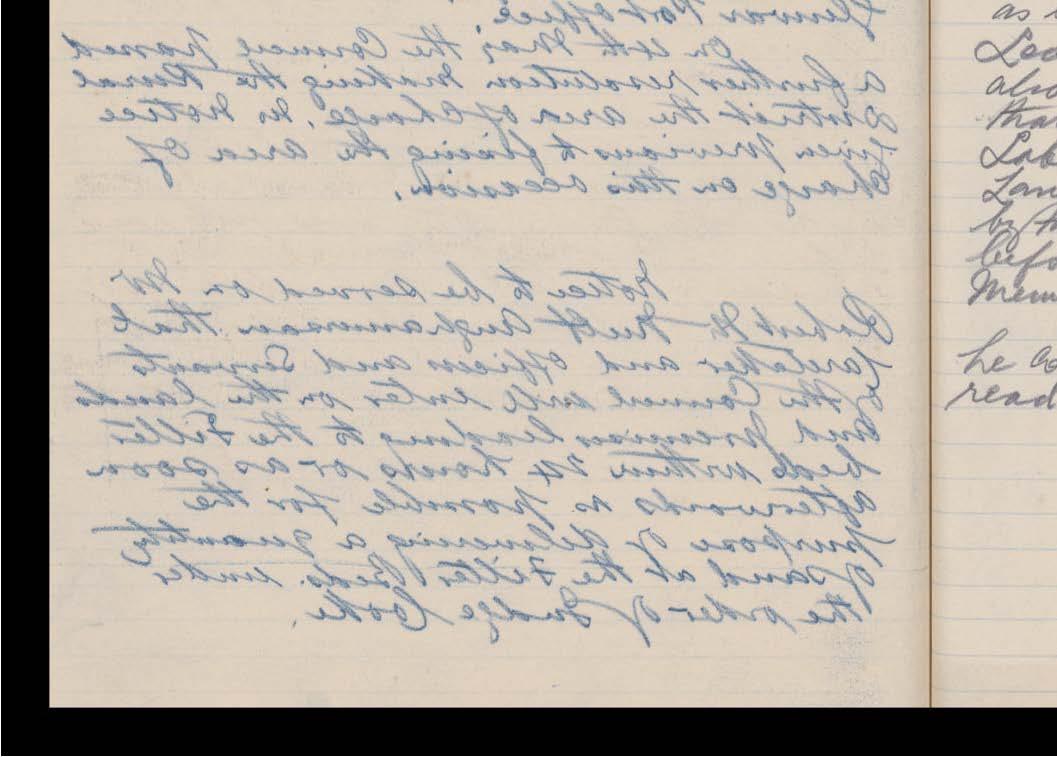 Post office.
On 14th the Council passed
a further resolution making the Rural
District the area of charge. No Notice
given previous to fixing the area of
charge on this occasion.
Notice to be served on Mr
Robert that
caretaker and officers and Servants
of the Council will enter on the lands
and premises leading to the Filter
beds within 24 hours or as soon
afterwards as possible for the
purpose of delivering a quantity
of sand at the Filter Beds. under
the order of Judge Cooke.
as
also
that
Lab
Lan
by th
befo
Mem
he co
read